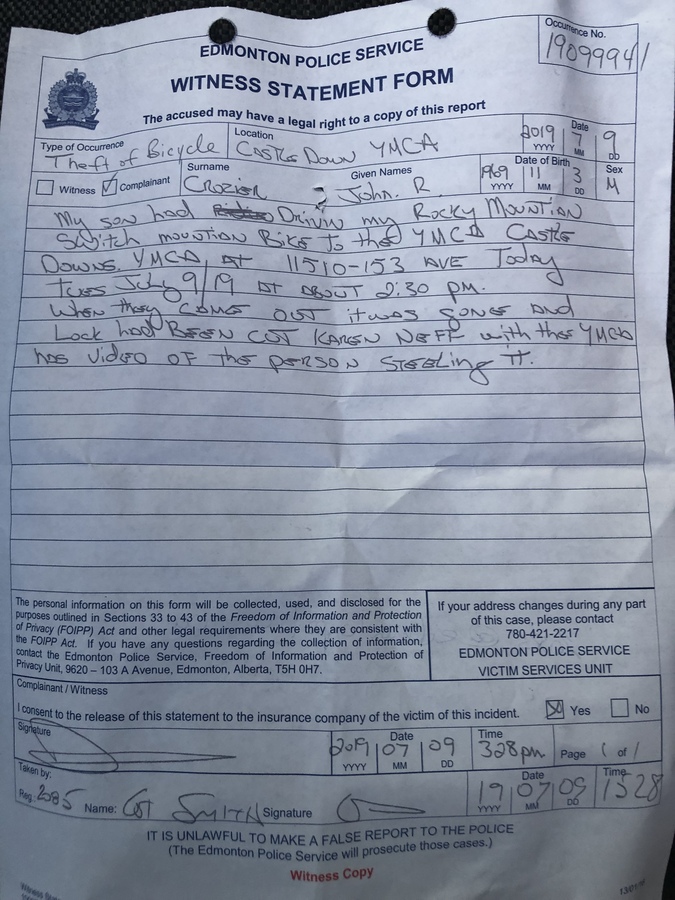 EDMONTON POLICE SERVICE
WITNESS STATEMENT FORM
The accused may have a legal right to a copy of this report
Occurrence No.
19099941
Type of Occurrence
Theft of Bicycle
Location
Castle Down YMCA
Date
2019 7 9
YYYY MM DD
Witness
Complainant
Surname
Crozier
Given Names
John. R
Date of Birth
1969 11 3
YYYY MM DD
Sex
M
My son had Drivin my Rocky Mountian
Switch mountian Bike to the YMCA Castle
Downs YMCA, At 11510-153 AVE Today
Tues July 9/19 at about 2:30 pm.
When they come out it was gone and
Lock had BEEN CUT KAREN NEFF with the YMCA
has video of the person steeling it.
The personal information on this form will be collected, used, and disclosed for the
purposes outlined in Sections 33 to 43 of the Freedom of Information and Protection
of Privacy (FOIPP) Act and other legal requirements where they are consistent with
the FOIPP Act. If you have any questions regarding the collection of information,
contact the Edmonton Police Service, Freedom of Information and Protection of
Privacy Unit, 9620 – 103 A Avenue, Edmonton, Alberta, T5H 0H7.
If your address changes during any part
of this case, please contact
780-421-2217
EDMONTON POLICE SERVICE
VICTIM SERVICES UNIT
Complainant / Witness
I consent to the release of this statement to the insurance company of the victim of this incident.
Yes
No
Signature
Date
2019 07 09
YYYY MM DD
Time
328pm
Page 1 of 1
Taken by:
Reg. Name: Cst Smith Signature
Date
19 07 09
YYYY MM DD
Time
1528
IT IS UNLAWFUL TO MAKE A FALSE REPORT TO THE POLICE
(The Edmonton Police Service will prosecute those cases.)
Witness Copy